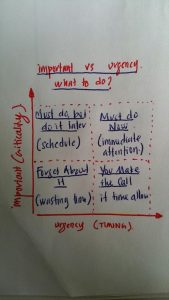 important vs urgency
what to do?
Must do but
do it later
(schedule)
Must do
Now
(immediate
attention)
Forget About
It
(wasting time)
You Make
the Call
if time allow
important (criticality)
urgency (TIMING)